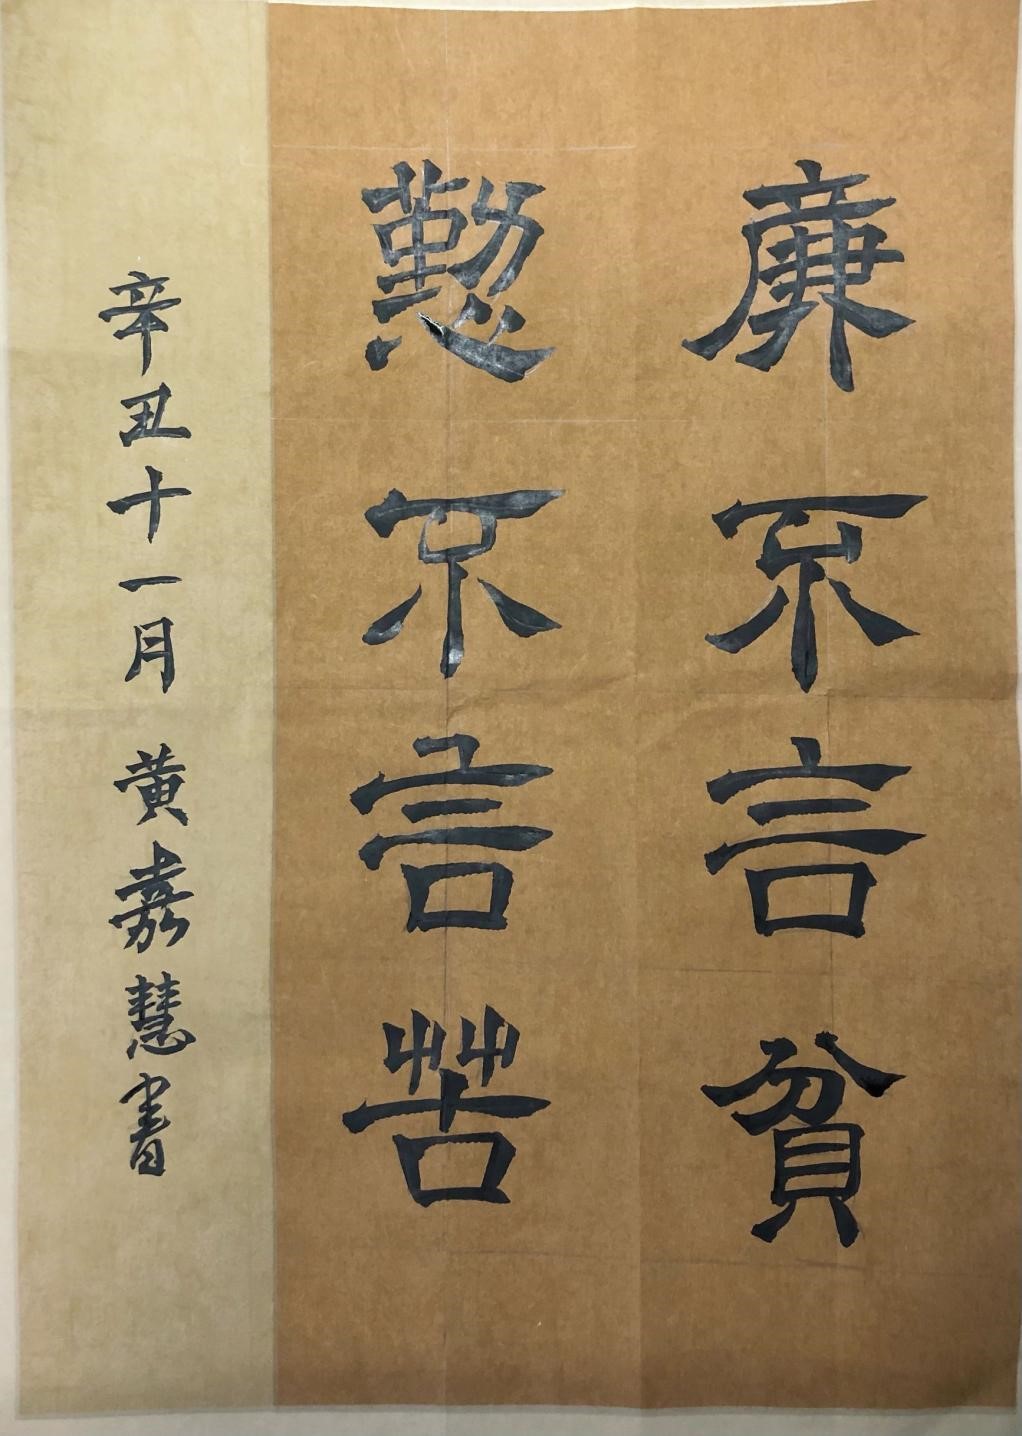 廉不言貧
懃不言苦
辛丑十一月 黄嘉慧書